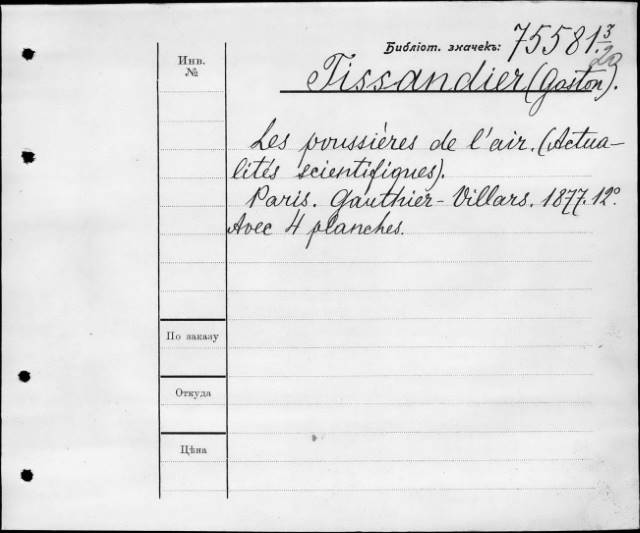 Инв.
№
Библіот. значекъ: 75581.3
20
Tissandier (Gaston).
Les poussières de l'air. (Actua-
lités scientifiques).
Paris. Gauthier-Villars. 1877. 12º
Avec 4 planches.
По заказу
Откуда
Цѣна